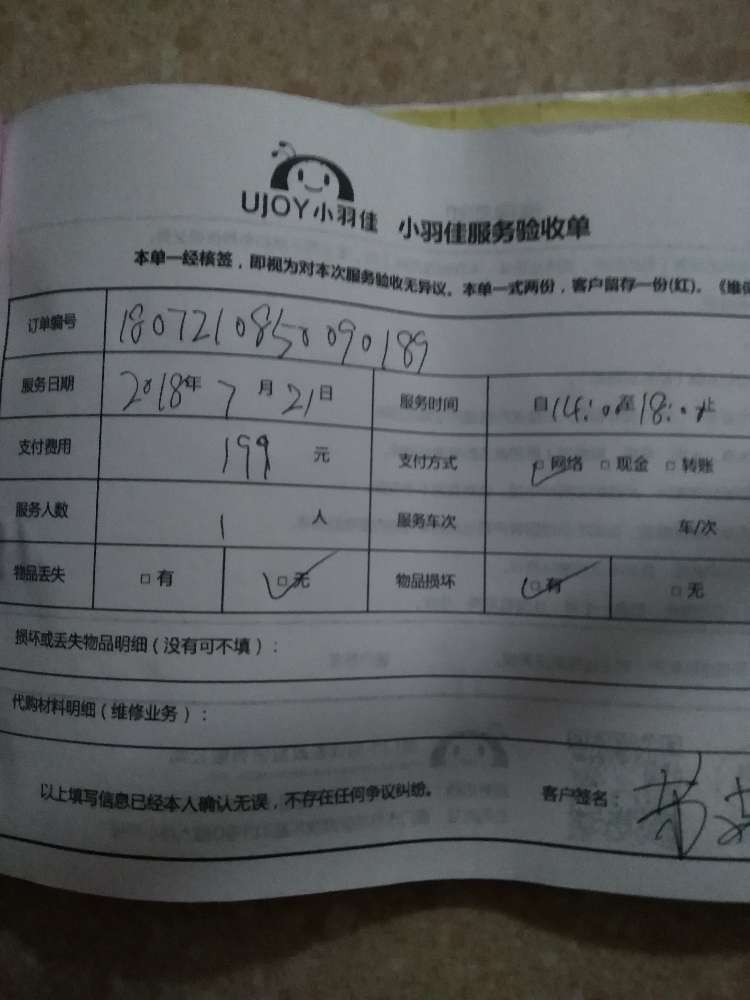 UJOY小羽佳 小羽佳服务验收单
本单一经核签，即视为对本次服务验收无异议。本单一式两份，客户留存一份(红)。《维保
订单编号 180721085090189
服务日期 2018年 7 月 21 日 服务时间 自14:00至18:00止
支付费用 199 元 支付方式 □ 网络 □ 现金 □ 转账
服务人数 1 人 服务车次 车/次
物品丢失 □ 有 □ 无 物品损坏 □ 有 □ 无
损坏或丢失物品明细（没有可不填）：
代购材料明细（维修业务）：
以上填写信息已经本人确认无误，不存在任何争议纠纷。 客户签名：